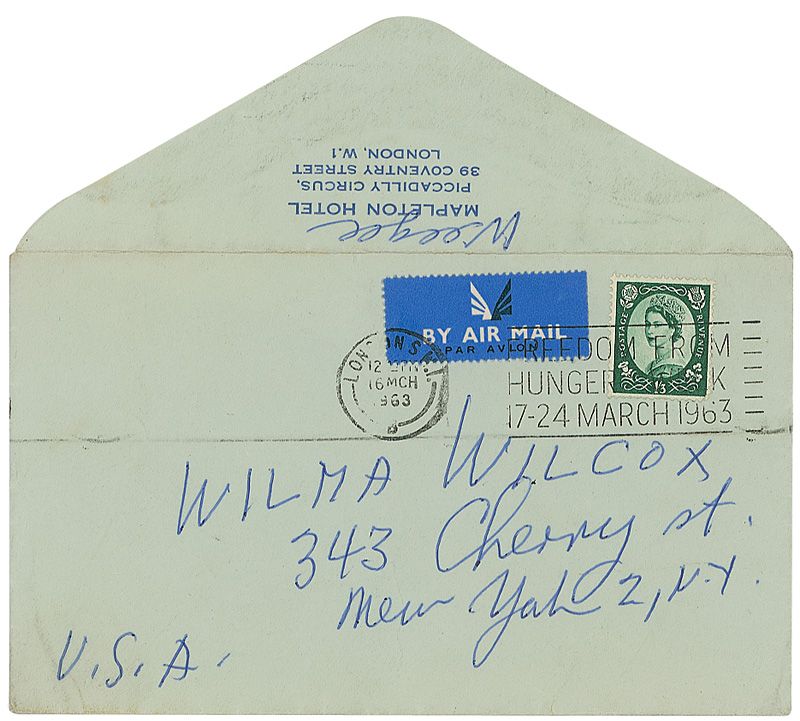 Weegee
MAPLETON HOTEL
PICCADILLY CIRCUS,
39 COVENTRY STREET
LONDON, W.1
BY AIR MAIL
PAR AVION
POSTAGE
REVENUE
1/3
LONDON S.W.1.
12
16 MCH
1963
FREEDOM FROM
HUNGER WEEK
17-24 MARCH 1963
WILMA WILCOX
343 Cherry st.
New York 2, N.Y.
U.S.A.